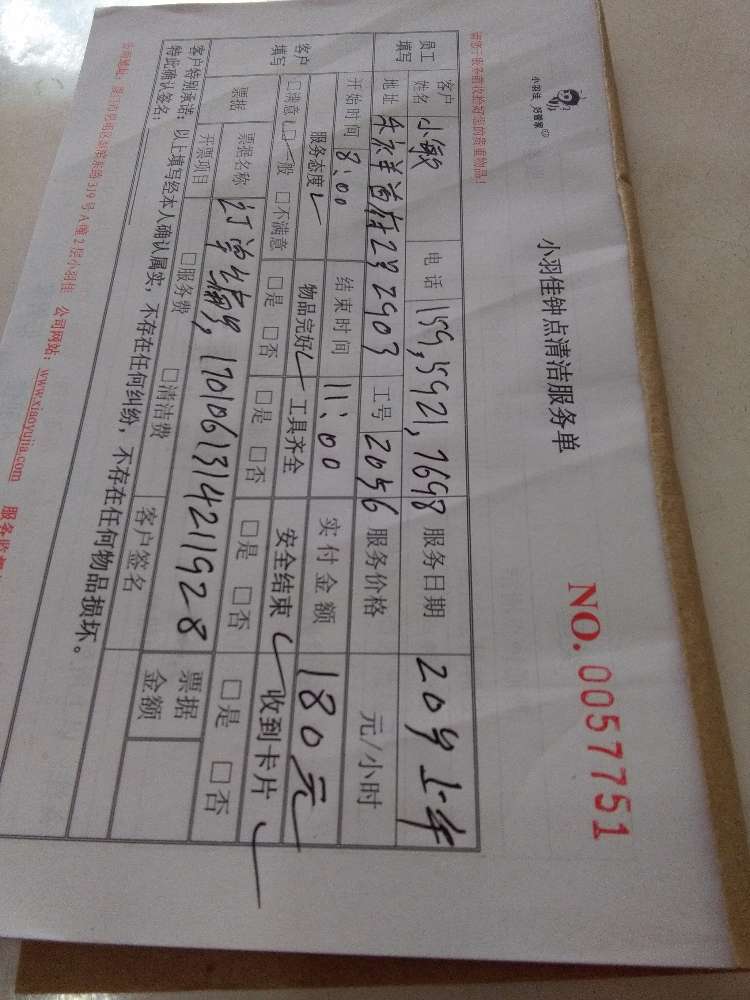 小羽佳 好管家
小羽佳钟点清洁服务单
NO. 0057751
员工填写 客户姓名 小敏 电话 159,5921,7698 服务日期 20号上午
地址 2号2903 工号 2056 服务价格 元/小时
开始时间 8:00 结束时间 11:00 实付金额 180元
客户填写 服务态度 ✓ 物品完好 ✓ 工具齐全 安全结束 ✓ 收到卡片 ✓
□满意 □一般 □不满意 □是 □否 □是 □否 □是 □否 □是 □否
票据 票据名称 订单编号, 17010613142211928 票据金额
开票项目 □服务费 □清洁费
客户特别承诺:以上填写经本人确认属实,不存在任何纠纷,不存在任何物品损坏。
特此确认签名 客户签名
319号A幢2层小羽佳 公司网站:www.xiaoyujia.com